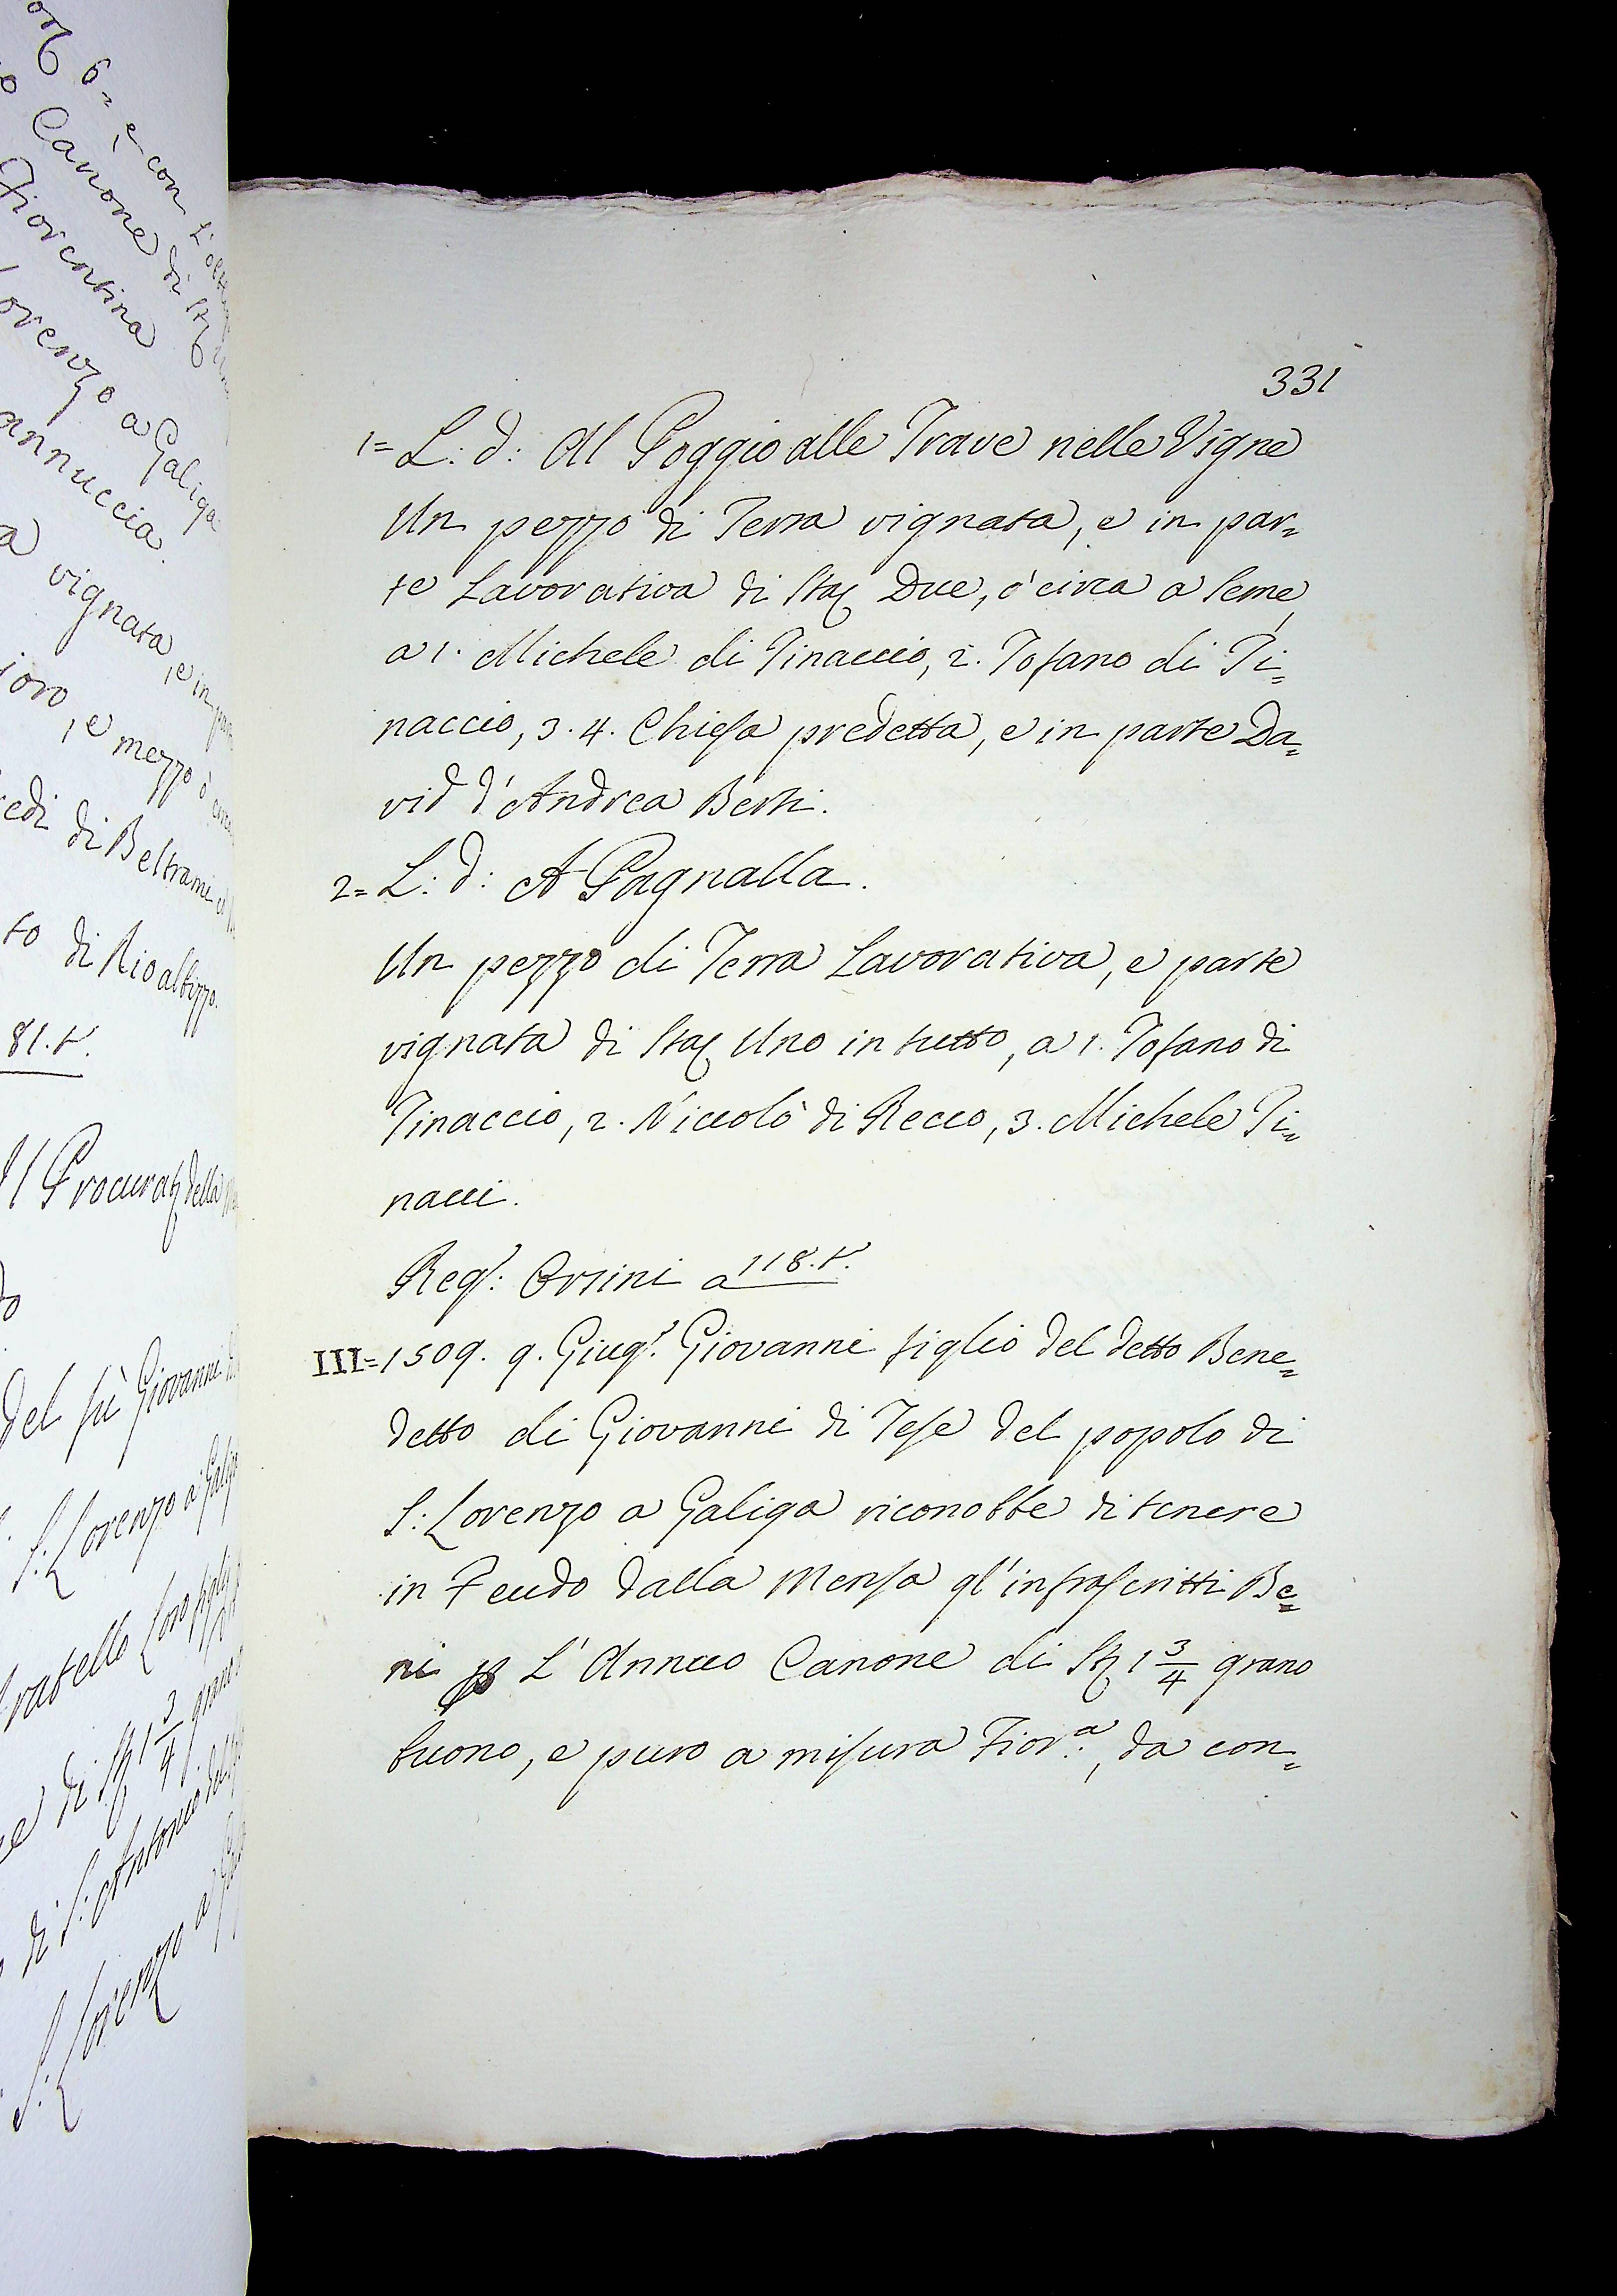 331
1= L: d: Al Poggio alle Trave nelle Vigne
Un pezzo di Terra vignata, e in par=
te Lavorativa di Sta: Due, ò circa a Seme,
a 1. Michele di Tinaccio, 2. Tofano di Ti=
naccio, 3. 4. Chiesa predetta, e in parte Da=
vid d'Andrea Berti.
2= L: d: A Pagnalla.
Un pezzo di Terra Lavorativa, e parte
vignata di Sta: Uno in tutto, a 1. Tofano di
Tinaccio, 2. Niccolò di Recco, 3. Michele Ti=
nacci.
Reg: Orsini a 118. t.
III= 1509. 9. Giug: Giovanni figlio del detto Bene=
detto di Giovanni di Tese del popolo di
S: Lorenzo a Galiga riconobbe di tenere
in Feudo dalla Mensa gl'infrascritti Be=
ni p L'Annuo Canone di St: 1 3/4 grano
buono, e puro a misura Fior:a, da con=
6= e con L'
Canone di St:
Fiorentina
Lorenzo a Galiga
annuccia
a vignata, e in
ioro, e mezzo ò
edi di Beltrami
to di Rio albizzo.
81. t.
Il Procurat: della
del fù Giovanni
S: Lorenzo a Galiga
fratello Loro figli
e di St: 1 3/4 grano
di S: Antonio del
S: Lorenzo a